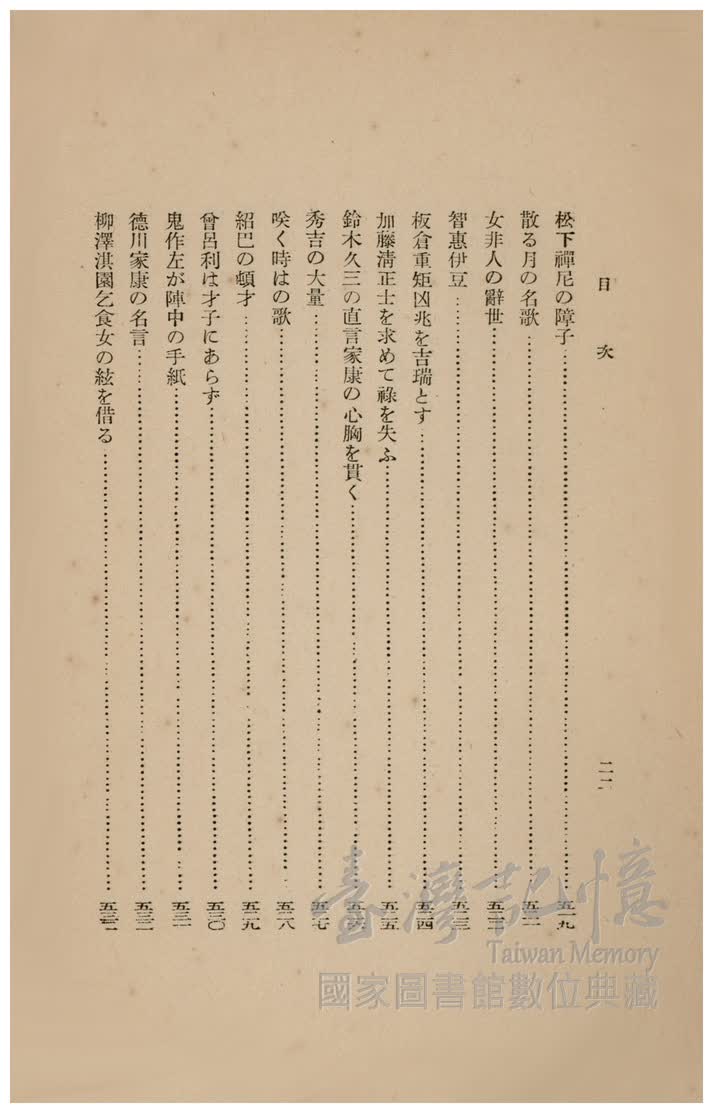 目次
二二
松下禪尼の障子……五一九
散る月の名歌……五二一
女非人の辭世……五二二
智惠伊豆……五二三
板倉重矩凶兆を吉瑞とす……五二四
加藤淸正士を求めて祿を失ふ……五二五
鈴木久三の直言家康の心胸を貫く……五二六
秀吉の大量……五二七
咲く時はの歌……五二八
紹巴の頓才……五二九
曾呂利は才子にあらず……五三〇
鬼作左が陣中の手紙……五三一
德川家康の名言……五三二
柳澤淇園乞食女の絃を借る……五三二
臺灣記憶
Taiwan Memory
國家圖書館數位典藏